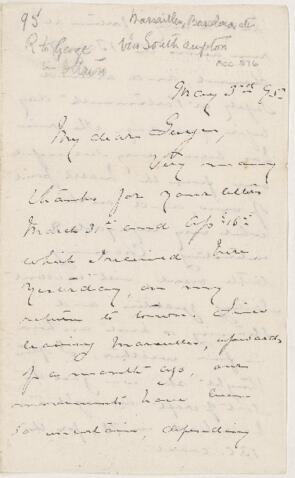 95
Marseilles, Bandol, etc
R to George via Southampton
ACC 576
May 3rd 95
My dear George,
Very many
thanks for your letters
March 31st and Apl 16th
which I received here
yesterday, on my
return to town. Since
leaving Marseilles, upwards
of a month ago, our
movements have been
so uncertain, depending